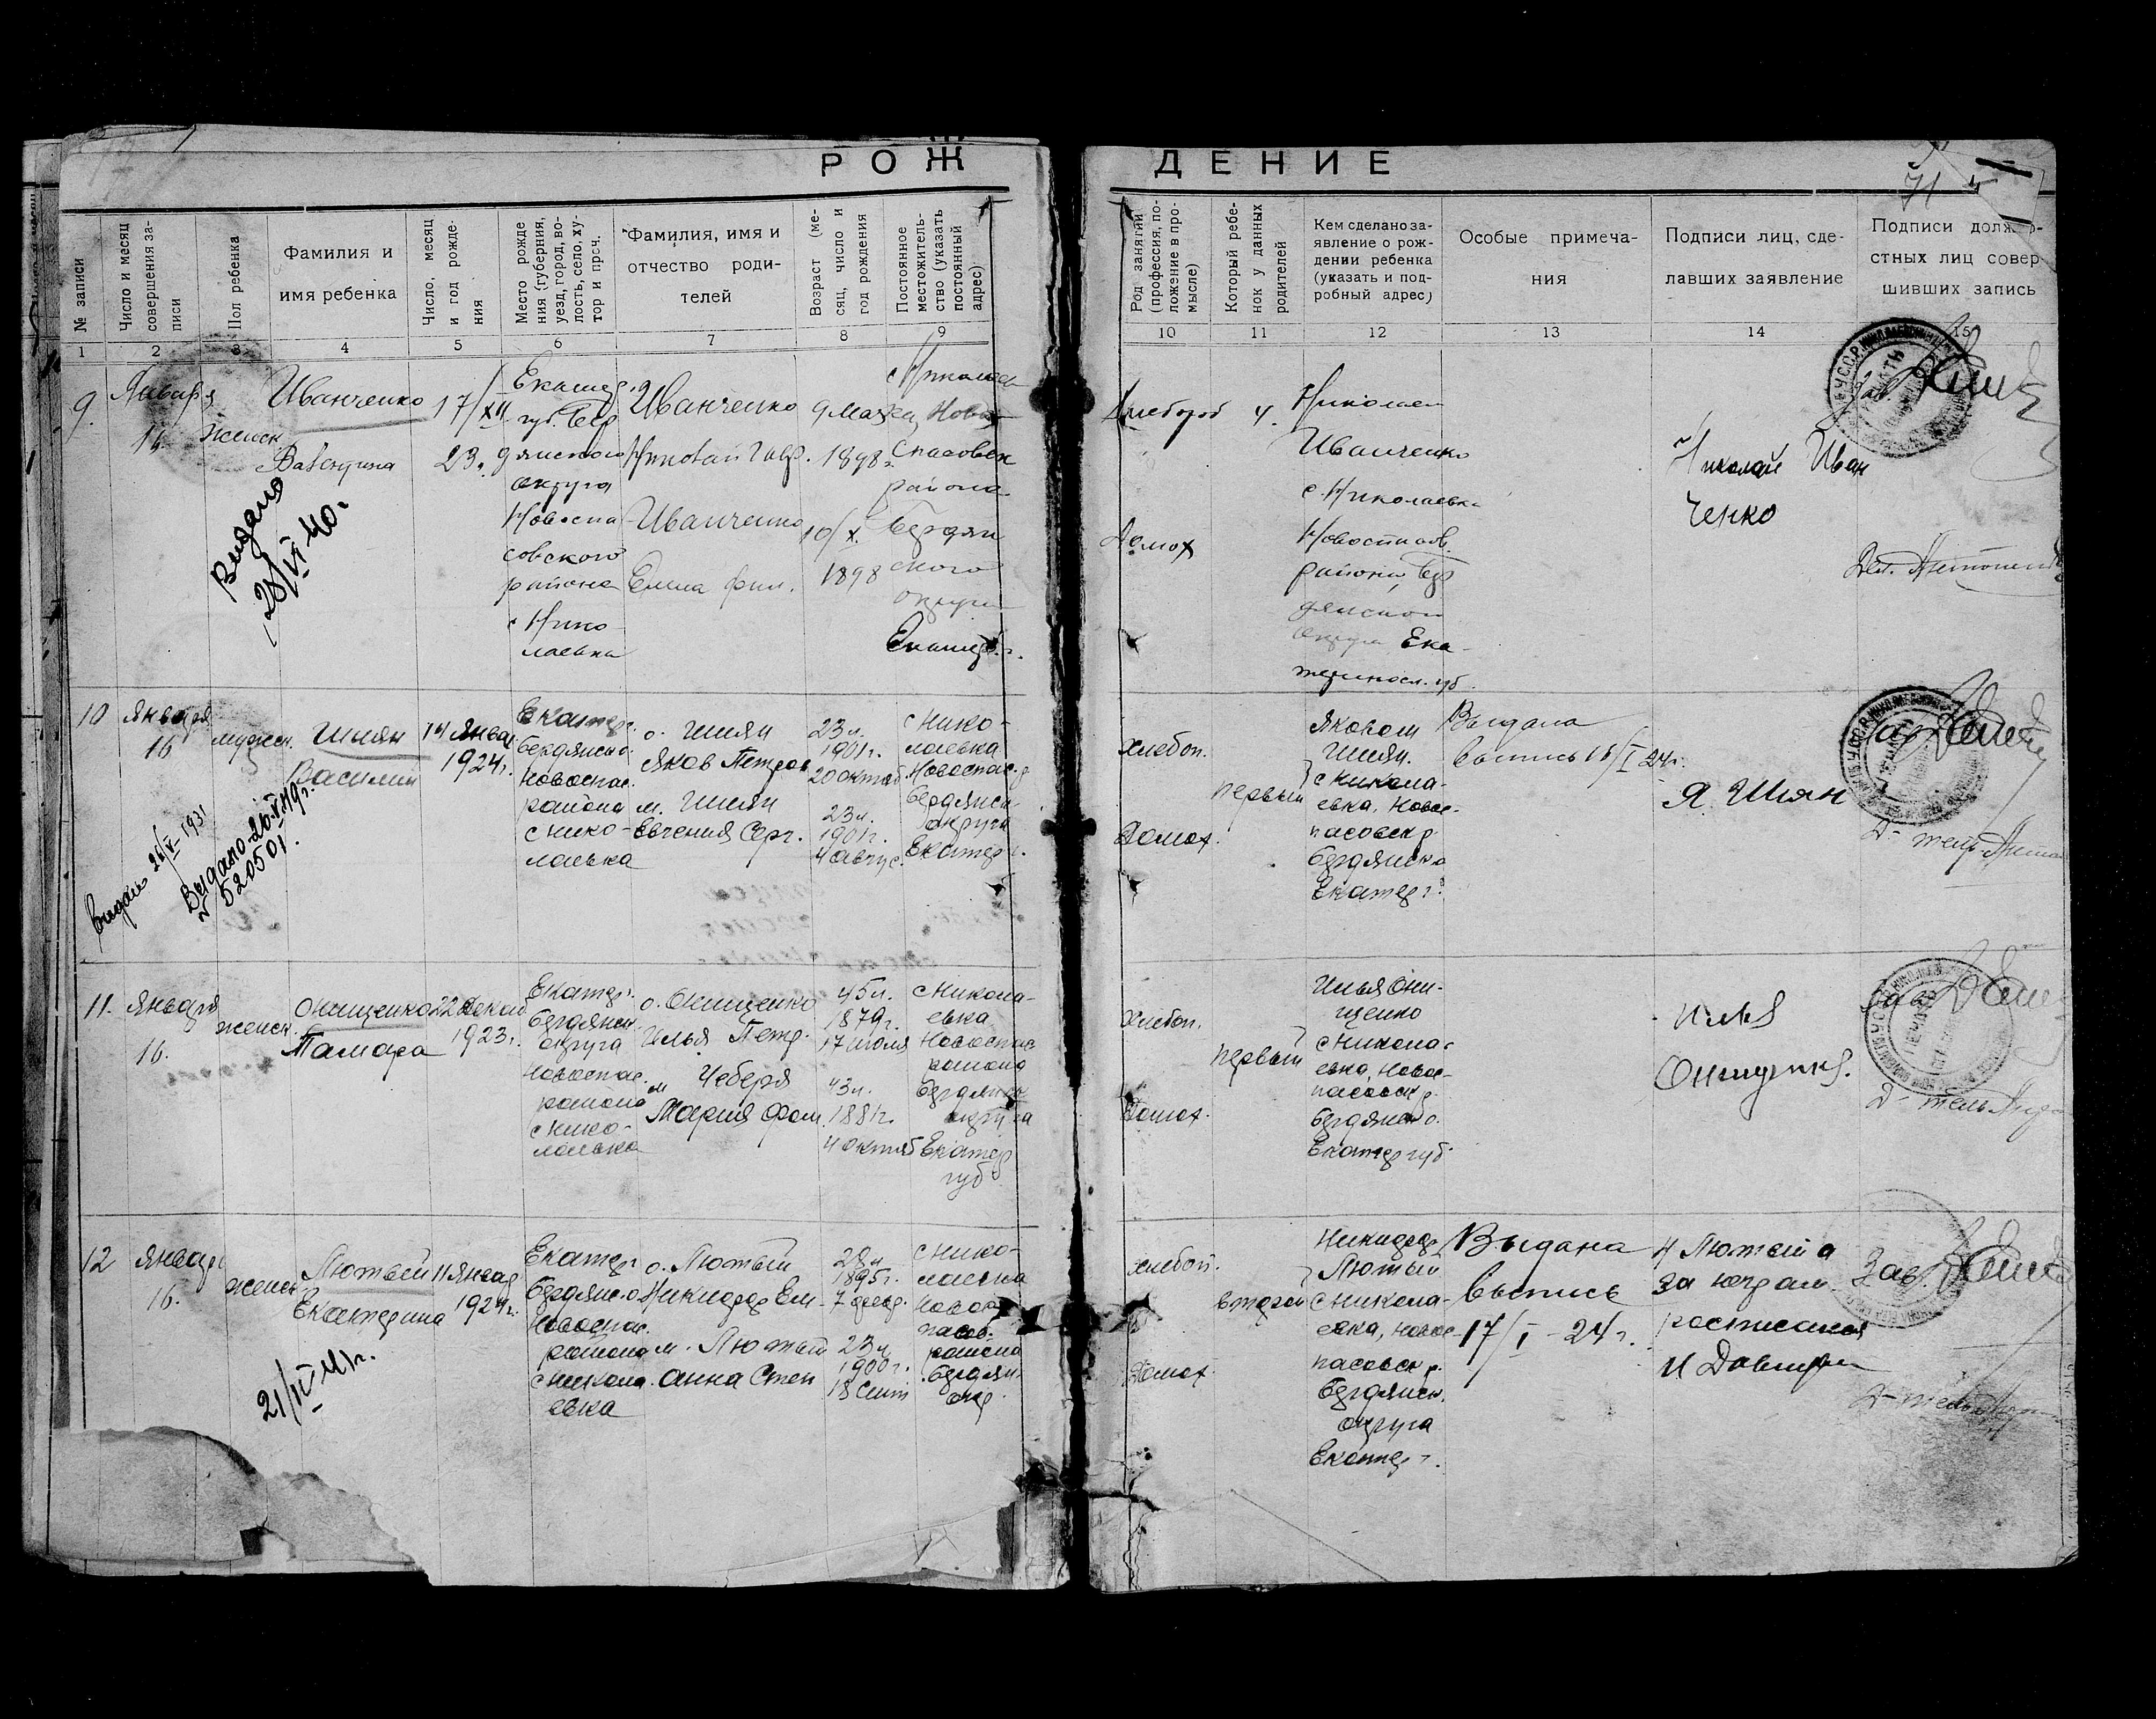 РОЖДЕНИЕ
№ записи
Число и месяц
совершения за-
писи
Пол ребенка
Фамилия и
имя ребенка
Число, месяц
и год рожде-
ния
Место рожде
ния (губерния,
уезд, город, во-
лость, село, ху-
тор и проч.
Фамилия, имя и
отчество роди-
телей
Возраст (ме-
сяц, число и
год рождения
Постоянное
местожитель-
ство (указать
постоянный
адрес)
Род занятий
(профессия, по-
ложение в про-
мысле)
Который ребе-
нок у данных
родителей
Кем сделано за-
явление о рож-
дении ребенка
(указать и под-
робный адрес)
Особые примеча-
ния
Подписи лиц, сде-
лавших заявление
Подписи долж
стных лиц совер
шивших запись
1 2 3 4 5 6 7 8 9 10 11 12 13 14 15
9.
Январь
16
женск
Иванченко
Валентина
17/XII
23.
Екатер.
губ. Бер
дянского
округа
Новоспа
совского
района
с Нико
лаевка
Иванченко
Николай Гавр.
Иванченко
Елена Фил.
9 мая
1898
10/X.
1898
с Николаев
Ново
спасовск
района
Бердян
ского
округа
Екатер. г.
Хлебороб
Домох
4.
Николаем
Иванченко
с. Николаевка
Новоспасов.
района, Бер
дянского
округа Ека-
теринос. губ
Николай Иван
Ченко
Зав.
Выдано
28/VI 40.
10
Января
16
мужск.
Шиян
Василий
14 Январ.
1924г.
Екатер.
Бердянско
Новоспас.
района
с Нико-
лаевка
о. Шиян
Яков Петров
м. Шиян
Евгения Серг.
23 л.
1901г.
20 октяб.
23 л.
1901г.
4 август.
с Нико-
лаевка
Новоспас. р
Бердянск.
округа
Екатер г.
хлебоп.
Домох.
первый
Яковом
Шиян.
с Никола-
евка, Новос-
пасовск р.
Бердянско
Екатер г.
Выдана
выпись 16/I 24г.
Я. Шиян
Зав
Выдано 26.VI 49г.
№ 520501.
11.
Января
16.
женск.
Онищенко
Тамара
22 декаб
1923г.
Екатер.
Бердянск
округа
Новоспас.
района
с Нико-
лаевка
о. Онищенко
Илья Петр.
м Чеберя
Мария Фом.
45 л.
1879г.
17 июля
43 л.
1881г.
4 октяб
с Никола-
евка
Новоспас
района
Бердянск
округа
Екатер
губ
Хлебоп.
Домох.
первый
Илья Они-
щенко
с Никола-
евка, Новос-
пасовск р.
Бердянско.
Екатер губ.
Илья
Зав
12
Январ
16.
женск.
Лютый
Екатерина
11 Январ
1924г.
Екатер
Бердянско
Новоспас.
района
с Никола.
евка
о. Лютый
Никифор Ем
м. Лютый
Анна Степ
28 л
1895г.
7 февр.
23 л
1900г.
18 сент
с Нико-
лаевка
Новос
пасов.
района
Бердян.
окр
хлебоп.
Домох.
второй
Никифор
Лютый
с Никола-
евка, Новос-
пасовск р.
Бердянск.
округа
Екатер г.
Выдана
выпись
17/I – 24 г.
Н Лютый а
расписался
Зав.
21/IV 41г.